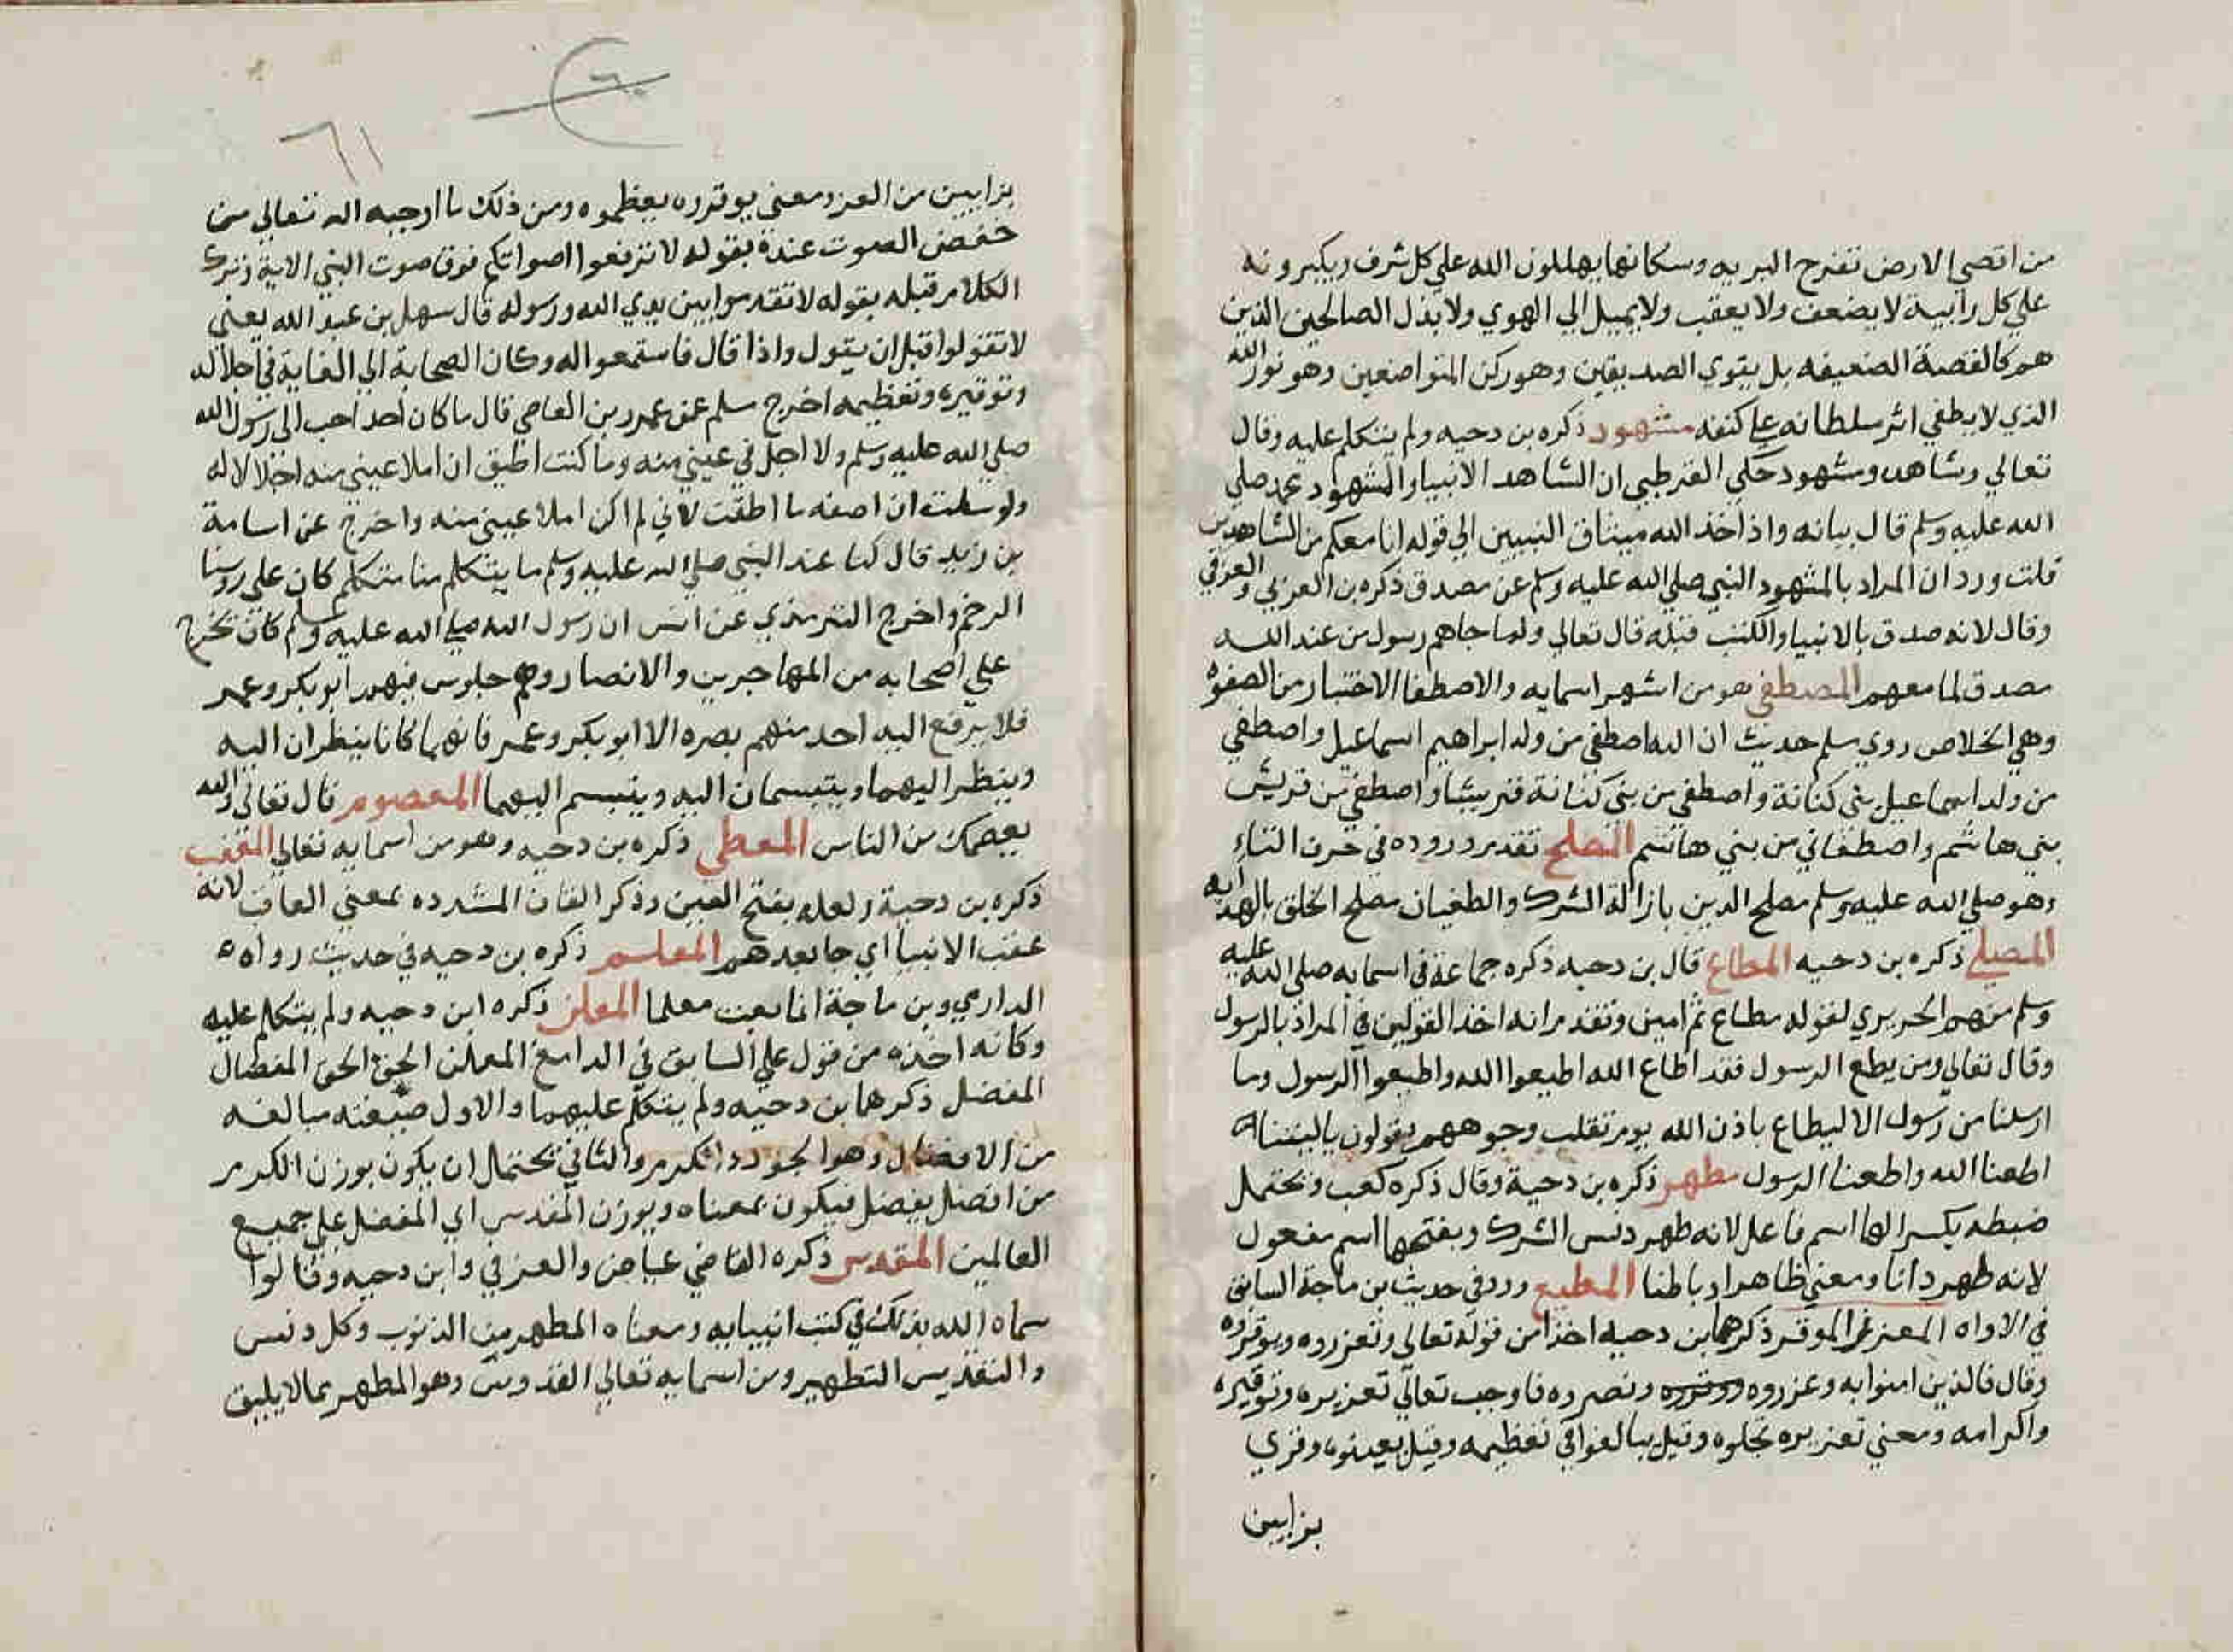 من اقصي الارض تفرح البريه وسكانها يهللون الله علي كل شرف ويكبرونه
علي كل رابية لا يضعف ولا يغلب ولا يميل الي الهوي ولا يذل الصالحين الذين
هم كالقصبة الضعيفه بل يقوي الصديقين وهو ركن المتواضعين وهو نور الله
الذي لا يطفي اثر سلطانه علي كتفه مشهود ذكره بن دحيه ولم يتكلم عليه وقال
تعالي وشاهد ومشهود حكي القرطبي ان الشاهد الانبيا والمشهود محمد صلي
الله عليه وسلم قال بيانه واذ اخذ الله ميثاق النبيين الي قوله انا معكم من الشاهدين
قلت ورد ان المراد بالمشهود النبي صلي الله عليه وسلم عن مصدق ذكره بن العربي والعزفي
وقال لانه صدق بالانبيا والكتب قبله قال تعالي ولما جاهم رسول من عند الله
مصدق لما معهم المصطفي هو من اشهر اسمايه والاصطفا الاختيار من الصفوة
وهي الخلاص روي مسلم حديث ان الله اصطفي من ولد ابراهيم اسماعيل واصطفي
من ولد اسماعيل بني كنانة واصطفي من بني كنانة قريشا واصطفي من قريش
بني هاشم واصطفاني من بني هاشم المصلح تقدم وروده في حرف التاء
وهو صلي الله عليه وسلم مصلح الدين بازالة الشرك والطغيان مصلح الخلق بالهدايه
المصلي ذكره بن دحيه المطاع قال بن دحيه ذكره جماعة في اسمايه صلي الله عليه
وسلم منهم الحريري لقوله مطاع ثم امين وتقدم انه اخذ القولين في المراد بالرسول
وقال تعالي ومن يطع الرسول فقد اطاع الله اطيعوا الله واطيعوا الرسول وما
ارسلنا من رسول الا ليطاع باذن الله يوم تقلب وجوههم يقولون ياليتنا
اطعنا الله واطعنا الرسول مطهر ذكره بن دحية وقال ذكره كعب ويحتمل
ضبطه بكسر الها اسم فاعل لانه طهر دنس الشرك وبفتحها اسم مفعول
لانه طهر ذاتا ومعني ظاهرا وباطنا المطيع ورد في حديث بن ماجة السابق
في الاواه المعزر الموقر ذكرهما بن دحيه اخذا من قوله تعالي وتعزروه وتوقروه
وقال فالذين امنوا به وعزروه ونصروه فاوجب تعالي تعزيره وتوقيره
واكرامه ومعني تعزيره تجلوه وقيل يبالغوا في تعظيمه وقيل يعينوه وقري
بزايين
٦٠
٦١
بزايين من العز ومعني يوقروه يعظموه ومن ذلك ما اوجبه الله تعالي من
خفض الصوت عنده بقوله لا ترفعوا اصواتكم فوق صوت النبي الاية وترك
الكلام قبله بقوله لا تقدموا بين يدي الله ورسوله قال سهل بن عبد الله يعني
لا تقولوا قبل ان يقول واذا قال فاستمعوا له وكان الصحابة الي الغاية في اجلاله
وتوقيره وتعظيمه اخرج مسلم عن عمرو بن العاصي قال ما كان احد احب الي رسول الله
صلي الله عليه وسلم ولا اجل في عيني منه وما كنت اطيق ان املا عيني منه اجلالا له
ولو سلت ان اصفه ما اطقت لاني لم اكن املا عيني منه واخرج عن اسامة
بن زيد قال كنا عند النبي صلي الله عليه وسلم ما يتكلم منا متكلم كان علي روسنا
الرخم واخرج الترمذي عن انس ان رسول الله صلي الله عليه وسلم كان يخرج
علي اصحابه من المهاجرين والانصار وهم جلوس فيهم ابو بكر وعمر
فلا يرفع اليه احد منهم بصره الا ابو بكر وعمر فانهما كانا ينظران اليه
وينظر اليهما ويتبسمان اليه ويتبسم اليهما المعصوم قال تعالي والله
يعصمك من الناس المعطي ذكره بن دحيه وهو من اسمايه تعالي المعقب
ذكره بن دحية ولعله بفتح العين وذكر القاف المشدده بمعني العاقب لانه
عقب الانبيا اي جا بعدهم المعلم ذكره بن دحيه في حديث رواه
الدارمي وبن ماجة انما بعثت معلما المعلن ذكره ابن دحيه ولم يتكلم عليه
وكانه اخذه من قول علي السابق في الدامغ المعلن الحق الحق المفضال
المفضل ذكرهما بن دحيه ولم يتكلم عليهما والاول صيغته مبالغه
من الافضال وهو الجود والكرم والثاني يحتمل ان يكون بوزن الكرم
من افضل يفضل فيكون بمعناه وبوزن المقدس اي المفضل علي جميع
العالمين المقدس ذكره القاضي عياض والعزفي وابن دحيه وقالوا
سماه الله بذلك في كتب انبيايه ومعناه المطهر من الذنوب وكل دنس
والتقديس التطهير ومن اسمايه تعالي القدوس وهو المطهر عما لا يليق